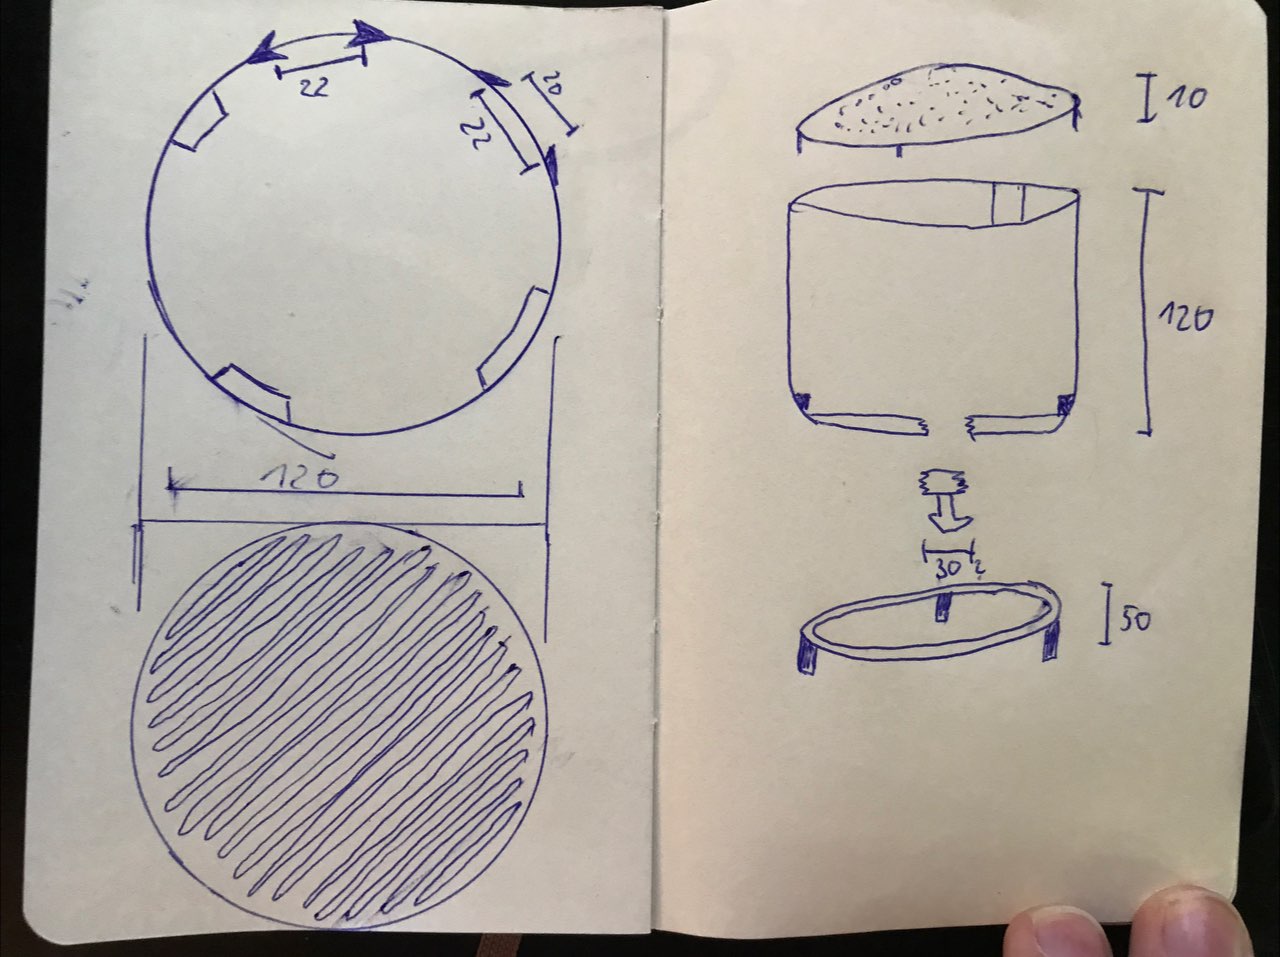 22
20
22
120
10
120
30?
50